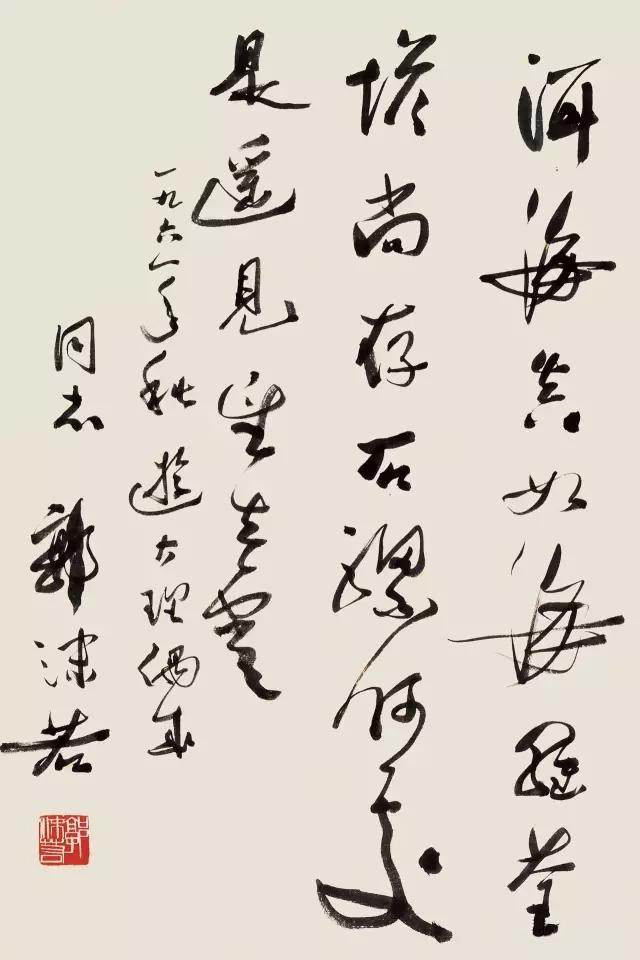 洱海真如海羅荃
塔尚存石騾何處
是遥見望夫雲
一九六一年秋遊大理偶成
同志 郭沫若
郭沫若